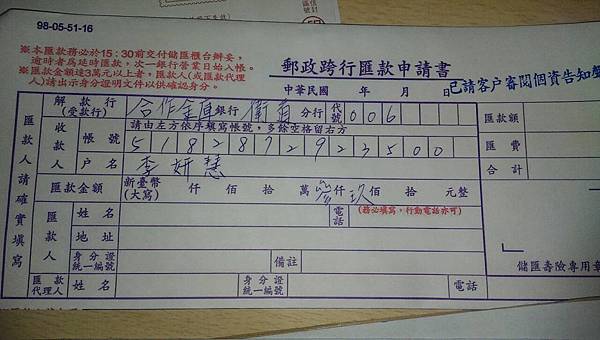 98-05-51-16
※本匯款務必於15:30前交付儲匯櫃台辦妥，
逾時者為延時匯款，次一銀行營業日始入帳。
※匯款金額達3萬元以上者，匯款人(或匯款代理
人)請出示身分證明文件以供確認身分。
郵政跨行匯款申請書
中華民國 年 月 日
已請客戶審閱個資告知聲
匯款人請確實填寫
解款行
(受款行)
合作金庫 銀行 衛道 分行 代號 006
收款人
帳號
請由左方依序填寫帳號，多餘空格留右方
5182872923500
戶名 李妍慧
匯款金額 新臺幣
(大寫)
仟 佰 拾 萬 仟 玖 佰 拾 元整
匯款人
姓名
電話
(務必填寫，行動電話亦可)
地址
身分證
統一編號
備註
匯款
代理人
姓名
身分證
統一編號
電話
匯款額
匯費
合計
儲匯壽險專用章